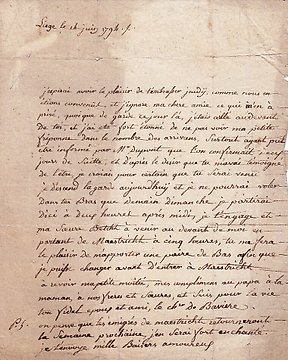 Liege le 14 juin 1794 .
j'espérai avoir le plaisir de t'embrasser jeudy, comme nous en
etions convenüs, et j'ignore ma chere amie, ce qui m'en à
privé, quoique de garde ce jour là, j'etais allé au devant
De toi, et j'ai eté fort étonné de ne pas voir ma petite
friponne dans le nombre des arrivens. Surtout ayant
été informé par Mr Dupuoit que l'on confirmait
jours de Suitte, et d'après le desir que tu m'avais témoigné
de l'etre, je croiais pour certain que tu serais venüe
je descend la garde aujourdhuy et je ne pourrai voler
Dans tes Bras que demain dimanche, je partirai
d'ici à deux heures après midy, je t'engage et
ma Sœure Betsth à venir au devant de moi en
partant de Maestricht à cinq heures, tu me fera
le plaisir de m'apporter une paire de Bas afin que
je puisse changer avant d'entrer à Maestricht
a revoir ma petite moitié, mes complimens au papa à la
maman, à nos freres et Sœures et suis pour la vie
ton fidel epoux et ami, le chr de Baviere
P.S. on pense que les émigrés de maestricht retourneront
la Semaine prochaine, j'en Serai fort enchanté.
je t'envoye mille Baisers amoureux